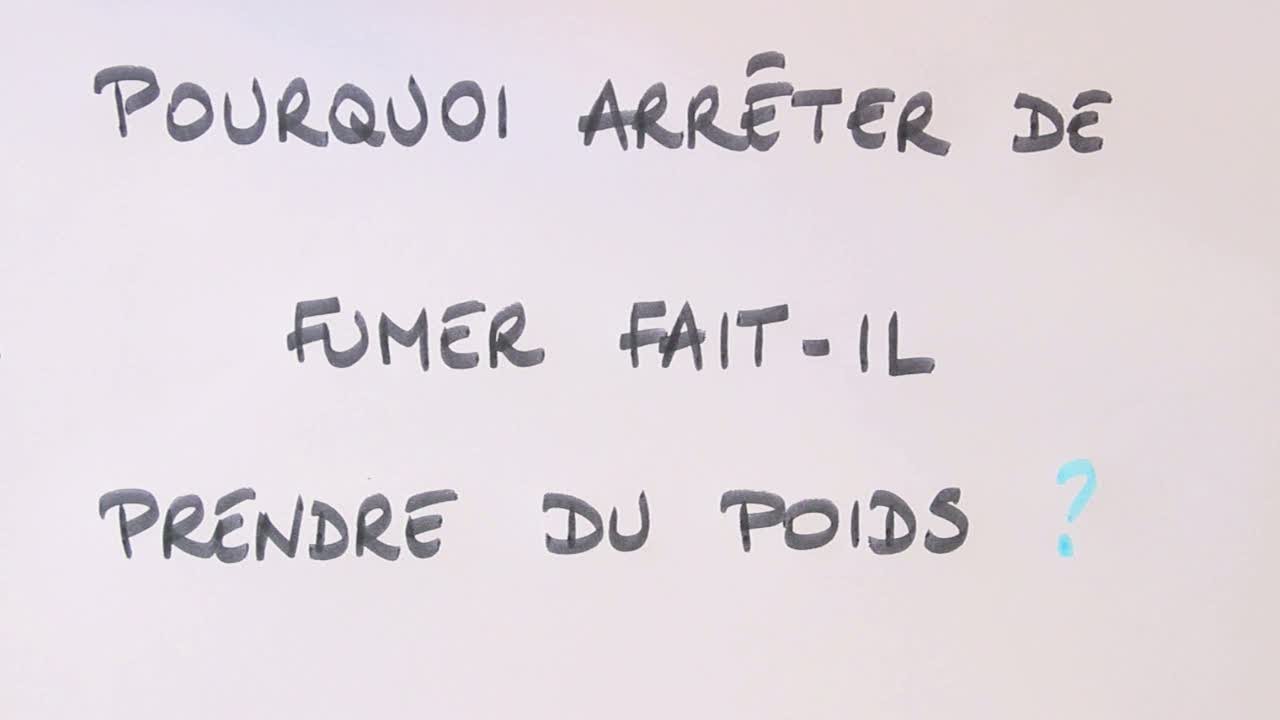 POURQUOI ARRÊTER DE
FUMER FAIT-IL
PRENDRE DU POIDS ?